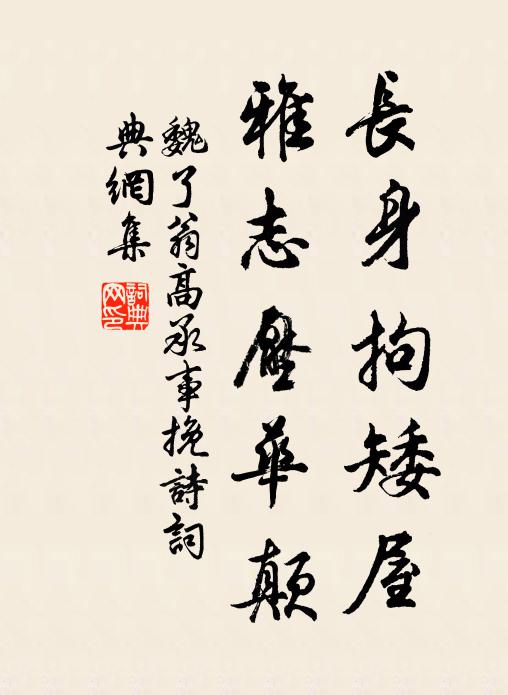 長身拘矮屋
雅志壓華顛
魏了翁高承事挽詩詞
典網集
詞典
网印